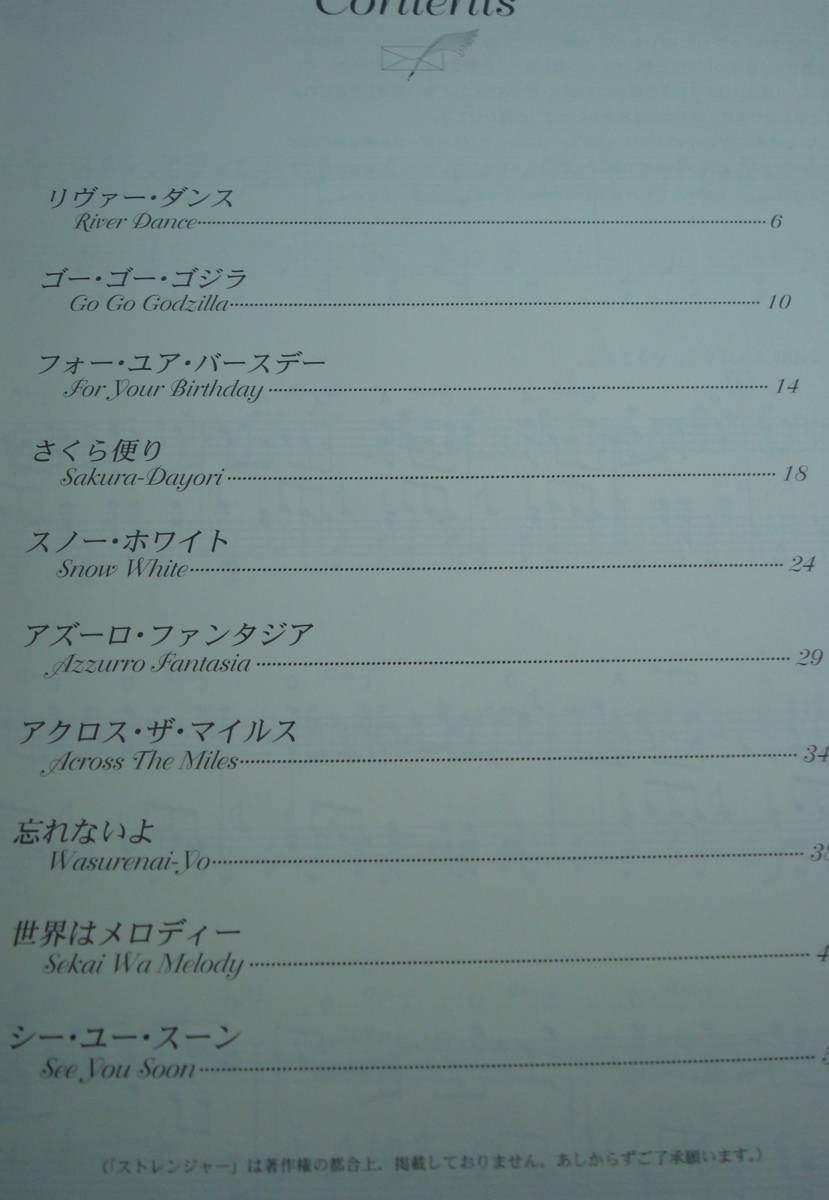 Contents
リヴァー・ダンス
River Dance 6
ゴー・ゴー・ゴジラ
Go Go Godzilla 10
フォー・ユア・バースデー
For Your Birthday 14
さくら便り
Sakura-Dayori 18
スノー・ホワイト
Snow White 24
アズーロ・ファンタジア
Azzurro Fantasia 29
アクロス・ザ・マイルス
Across The Miles 34
忘れないよ
Wasurenai-Yo
世界はメロディー
Sekai Wa Melody
シー・ユー・スーン
See You Soon
(「ストレンジャー」は著作権の都合上、掲載しておりません。あしからずご了承願います。)